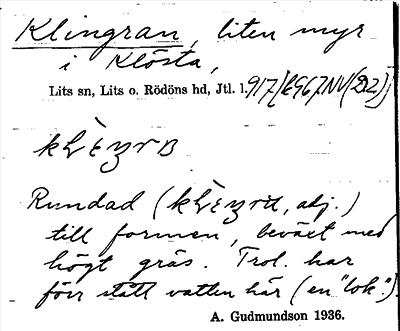 Klingran, liten myr
i Klösta,
Lits sn, Lits o. Rödöns hd, Jtl. l. 917/E967NV(D2)
Rundad (, adj.)
till formen, beväxt med
högt gräs. Trol. har
förr stått vatten här (en "lok").
A. Gudmundson 1936.